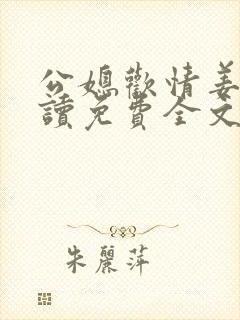 公媳歡情姜
讀免費全文
朱麗萍